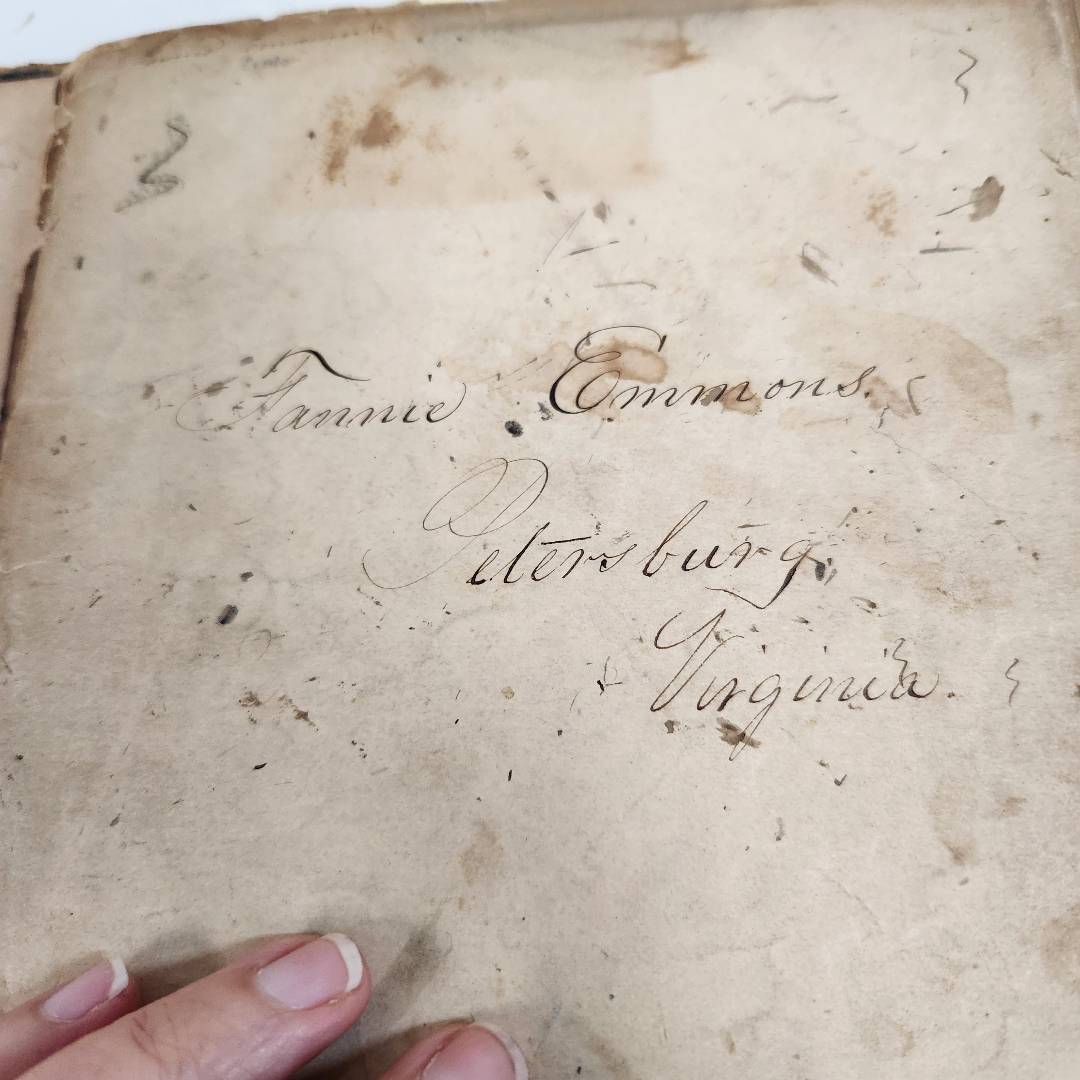 Fannie Emmons.
Petersburg,
Virginia.